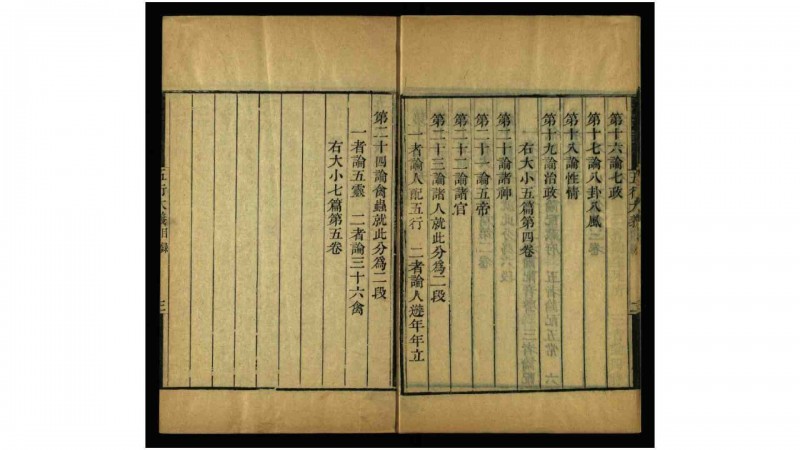 第十六論七政
第十七論八卦八風
第十八論性情
第十九論治政
右大小五篇第四卷
第二十論諸神
第二十一論五帝
第二十二論諸官
第二十三論諸人就此分為二段
一者論人配五行　二者論人遊年年立
第二十四論禽蟲就此分為二段
一者論五靈　二者論三十六禽
右大小七篇第五卷
五行大義目錄
三